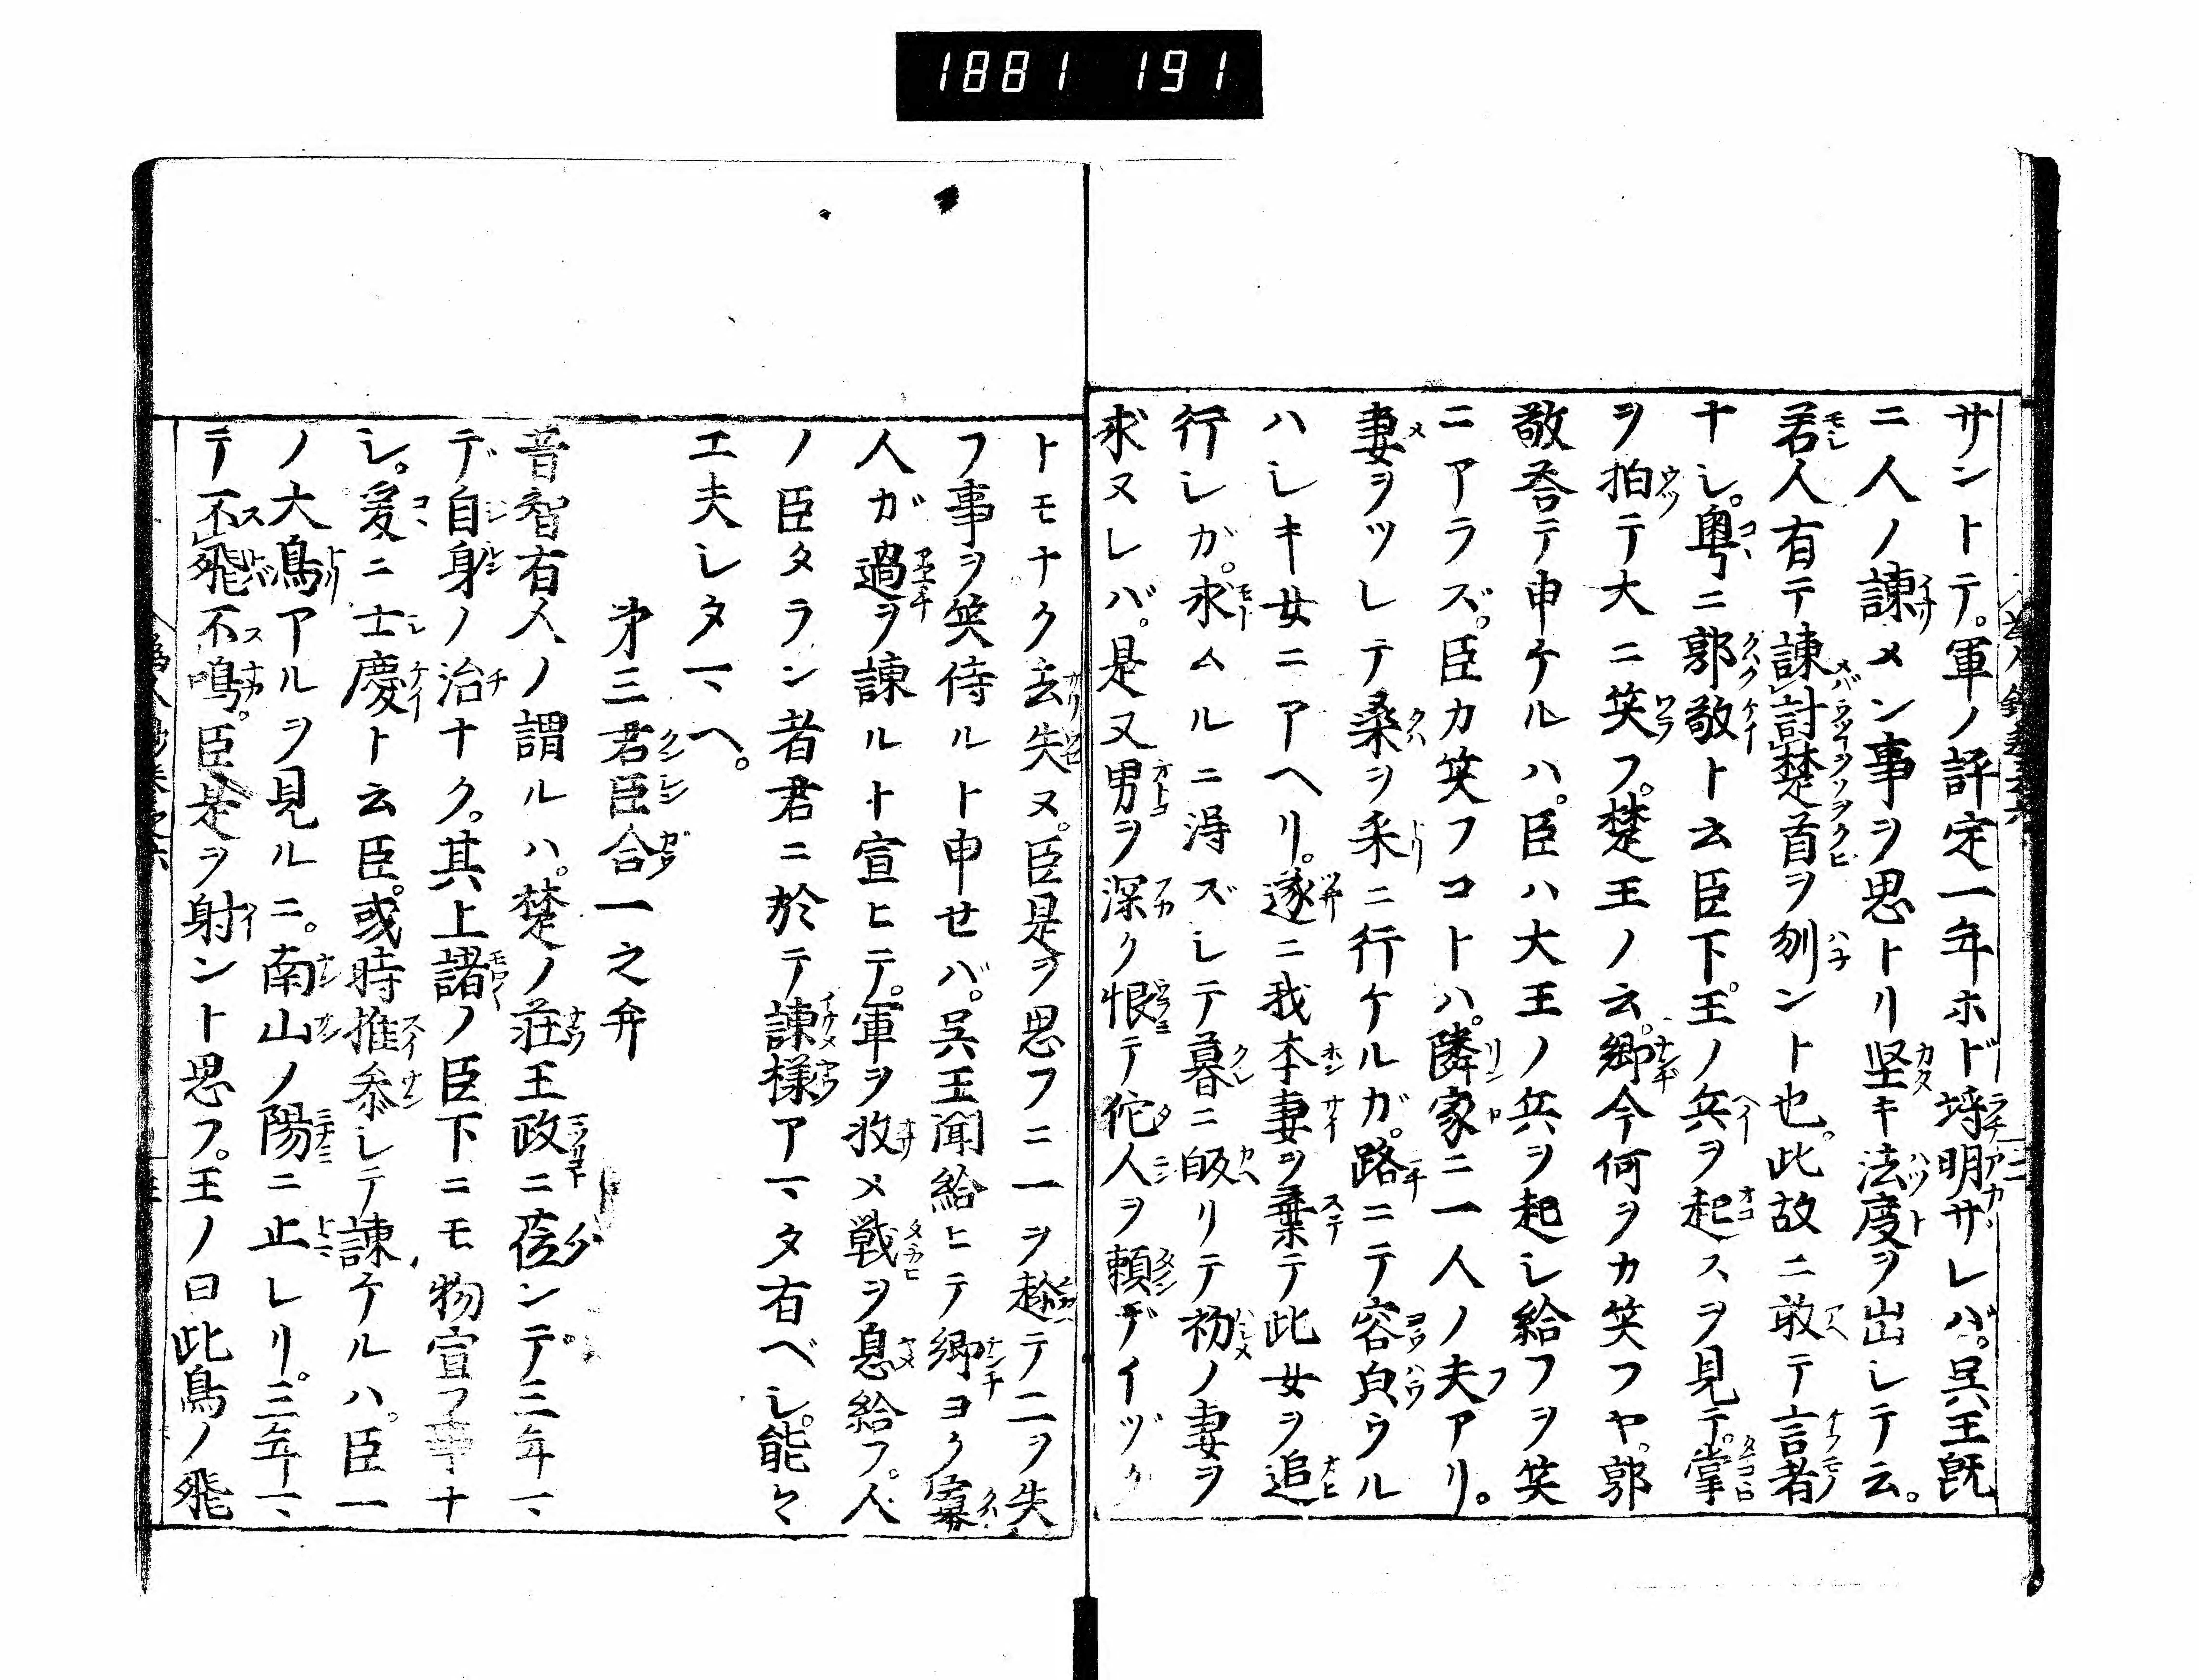 1881 191
サントテ。軍ノ評定一年ホド埒明ザレバ。呉王既
ニ人ノ諫メン事ヲ思トリ堅キ法度ヲ出シテ云。
若人有テ諫討楚首ヲ刎ント也。此故ニ敢テ言者
ナシ。粤ニ郭敬ト云臣下。王ノ兵ヲ起スヲ見テ。掌
ヲ拍テ大ニ笑フ。楚王ノ云。郷今何ヲカ笑フヤ。郭
敬荅テ申ケルハ。臣ハ大王ノ兵ヲ起シ給フヲ笑
ニアラズ。臣カ笑フコトハ。隣家ニ一人ノ夫アリ。
妻ヲツレテ桑ヲ采ニ行ケルガ。路ニテ容皃ウル
ハシキ女ニアヘリ。遂ニ我本妻ヲ棄テ此女ヲ追
行シガ。求ムルニ得ズシテ暮ニ皈リテ初ノ妻ヲ
求ヌレバ。是又男ヲ深ク恨テ佗人ヲ頼デイヅク
トモナク去失ヌ。臣是ヲ思フニ一ヲ趂テ二ヲ失
フ事ヲ笑侍ルト申せバ。呉王聞給ヒテ郷ヨク寡
人ガ過ヲ諫ルト宣ヒテ。軍ヲ收メ戦ヲ息給フ。人
ノ臣タラン者君ニ於テ諫様アマタ有ベシ。能々
工夫シタマヘ。
第三君臣合一之弁
昔智有人ノ謂ルハ。楚ノ荘王政ニ莅ンデ三年マ
デ自身ノ治ナク。其上諸ノ臣下ニモ物宣フ事ナ
シ。爰ニ士慶ト云臣。或時推参シテ諫ケルハ。臣一
ノ大鳥アルヲ見ルニ。南山ノ陽ニ止レリ。三年マ
テ不飛不鳴。臣是ヲ射ント思フ。王ノ曰此鳥ノ飛